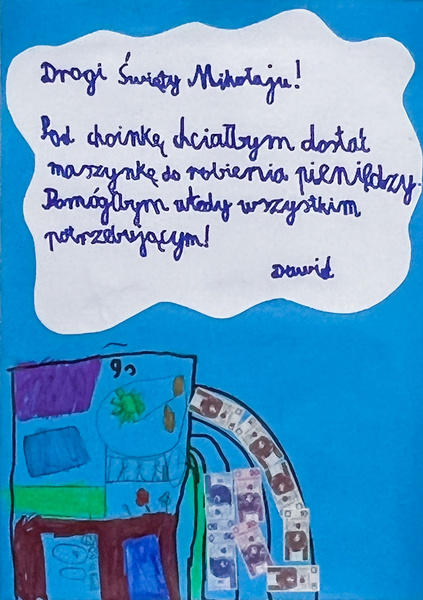 Drogi Święty Mikołaju!
Pod choinkę chciałbym dostał
maszynkę do robienia pieniędzy.
Pomógłbym wtedy wszystkim
potrzebującym!
Dawid